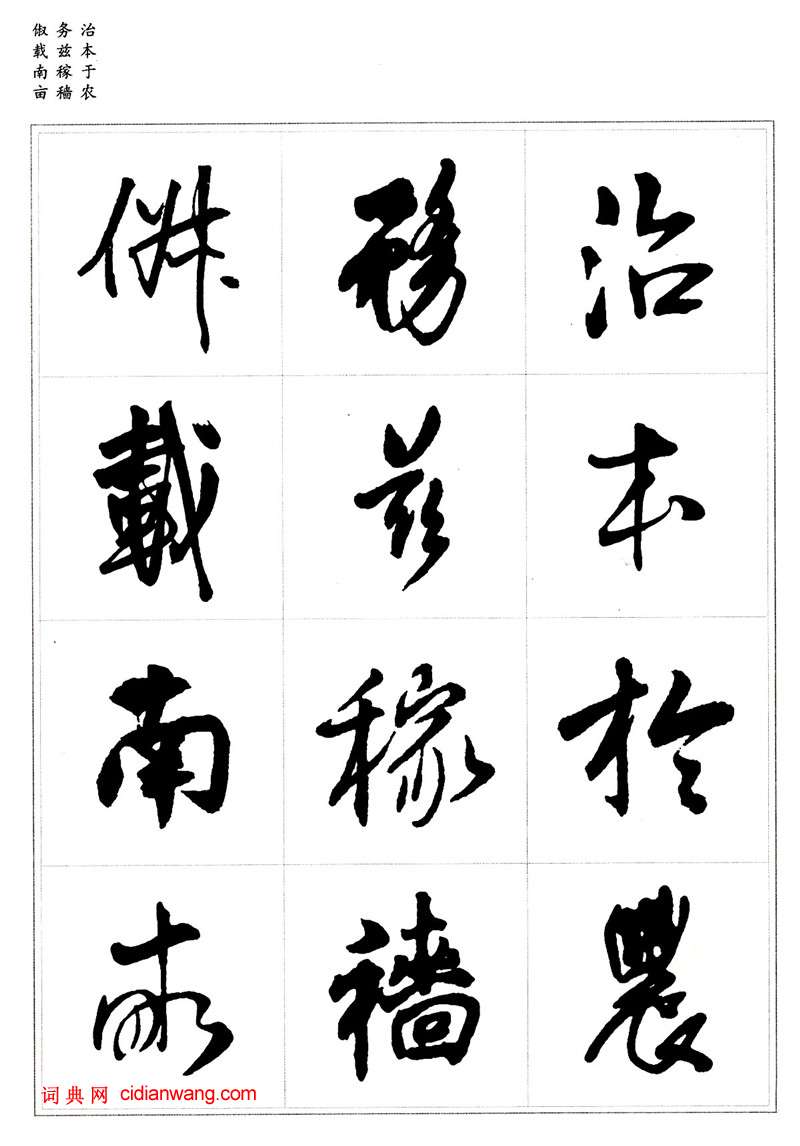 治本于农
务兹稼穑
俶载南亩
治本於農
務茲稼穡
俶載南畝
词典网 cidianwang.com